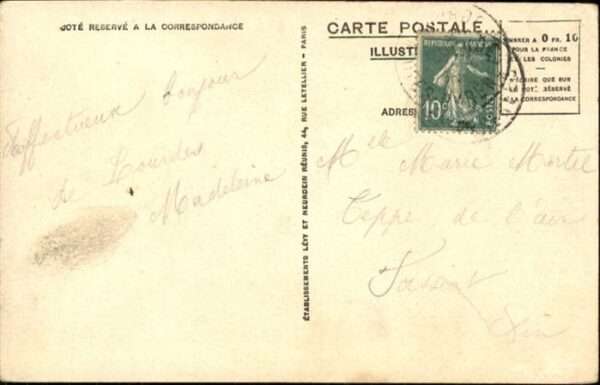 COTÉ RESERVÉ A LA CORRESPONDANCE
Affectueux bonjour
de Lourdes
Madeleine
ÉTABLISSEMENTS LÉVY ET NEURDEIN RÉUNIS, 44, RUE LETELLIER - PARIS
CARTE POSTALE
ILLUST
ADRES
10c
A 0 FR. 10
POUR LA FRANCE
LES COLONIES
RÉSERVÉ
A LA CORRESPONDANCE
Melle Marie Mortel
Teppe de l'ain
Ain